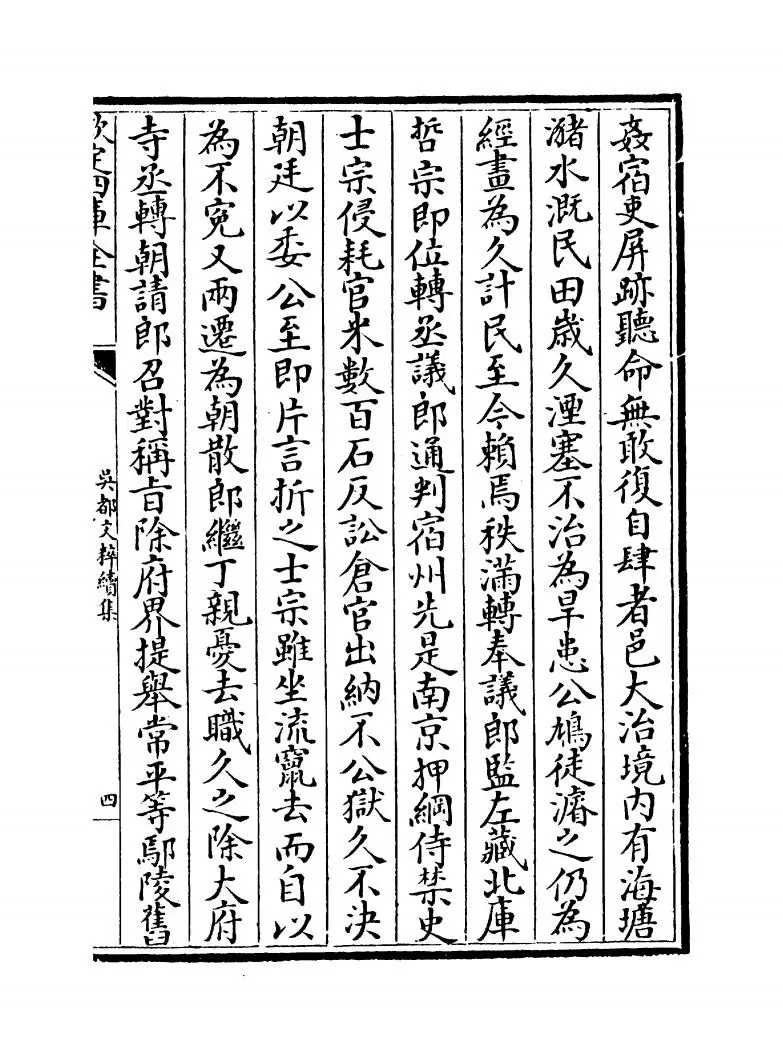 姦宿吏屏跡聽命無敢復自肆者邑大治境内有海塘
瀦水溉民田歲久湮塞不治為旱患公鳩徒濬之仍為
經畫為久計民至今賴焉秩滿轉奉議郎監左藏北庫
哲宗即位轉丞議郎通判宿州先是南京押綱侍禁史
士宗侵耗官米數百石反訟倉官出納不公獄久不決
朝廷以委公至即片言折之士宗雖坐流竄去而自以
為不寃又兩遷為朝散郎繼丁親憂去職久之除大府
寺丞轉朝請郎召對稱旨除府界提舉常平等鄢陵舊
欽定四庫全書
吳都文粹續集
四